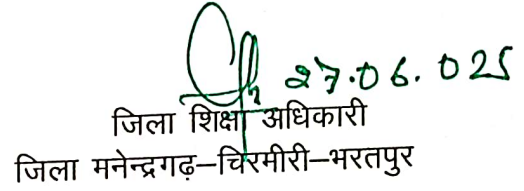 27.06.025
जिला शिक्षा अधिकारी
जिला मनेन्द्रगढ़–चिरमीरी–भरतपुर